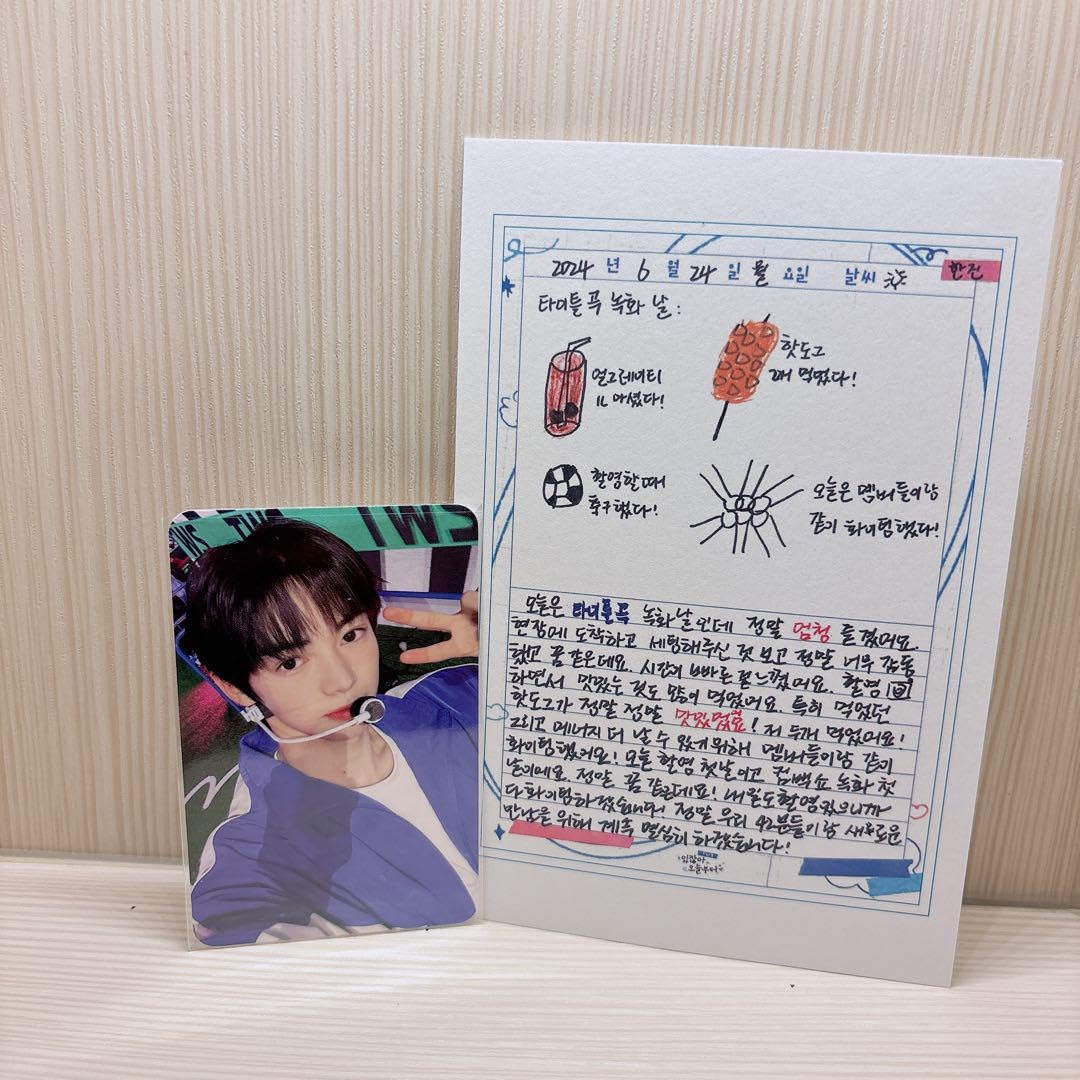 2024 년 6 월 24 일 월 요일 날씨
한진
타이틀 곡 녹화 날:
얼그레이티
1L 마셨다!
핫도그
2개 먹었다!
촬영할 때
축구했다!
오늘은 멤버들이랑
같이 화이팅 했다!
오늘은 타이틀 곡 녹화날인데 정말 엄청 즐겼어요.
현장에 도착하고 세팅해주신 것 보고 정말 너무 감동
했고 꿈 같은데요. 시간이 빠른 걸 느꼈어요. 촬영
하면서 맛있는 것도 많이 먹었어요. 특히 먹었던
핫도그가 정말 정말 맛있었어요! 저 두개 먹었어요!
그리고 에너지 더 날 수 있기 위해 멤버들이랑 같이
화이팅했어요! 오늘 촬영 첫날이고 컴백쇼 녹화 첫
날이네요. 정말 꿈 같은데요! 내일도 촬영있으니까
다 화이팅하겠습니다! 정말 우리 42분들이랑 새로운
만남을 위해 계속 열심히 하겠습니다!
TWS
있잖아
오늘부터
TWS
TWS
TWS